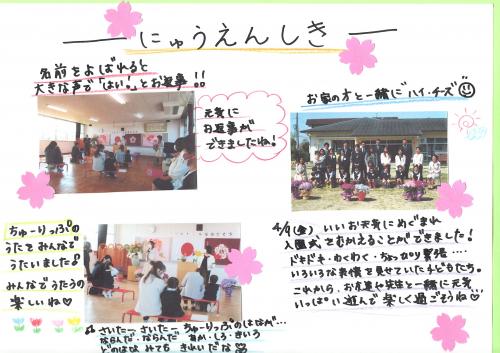 にゅうえんしき
名前をよばれると
大きな声で「はい!」とお返事!!
元気に
お返事が
できましたね!
お家の方と一緒に"ハイ・チーズ"
4/9(金) いいお天気にめぐまれ
入園式をむかえることができました!
ドキドキ・わくわく・ちょっぴり緊張‥‥
いろいろな表情を見せていた子どもたち。
これから、お友達や先生と一緒に元気
いっぱい遊んで楽しく過ごそうね♡
ちゅーりっぷの
うたをみんなで
うたいました♪
みんなでうたうの
楽しいね♡
♫ さいたー さいたー ちゅーりっぷのはなが‥‥
ならんだ・ならんだ あか・しろ・きいろ
どのはな みても きれいだな